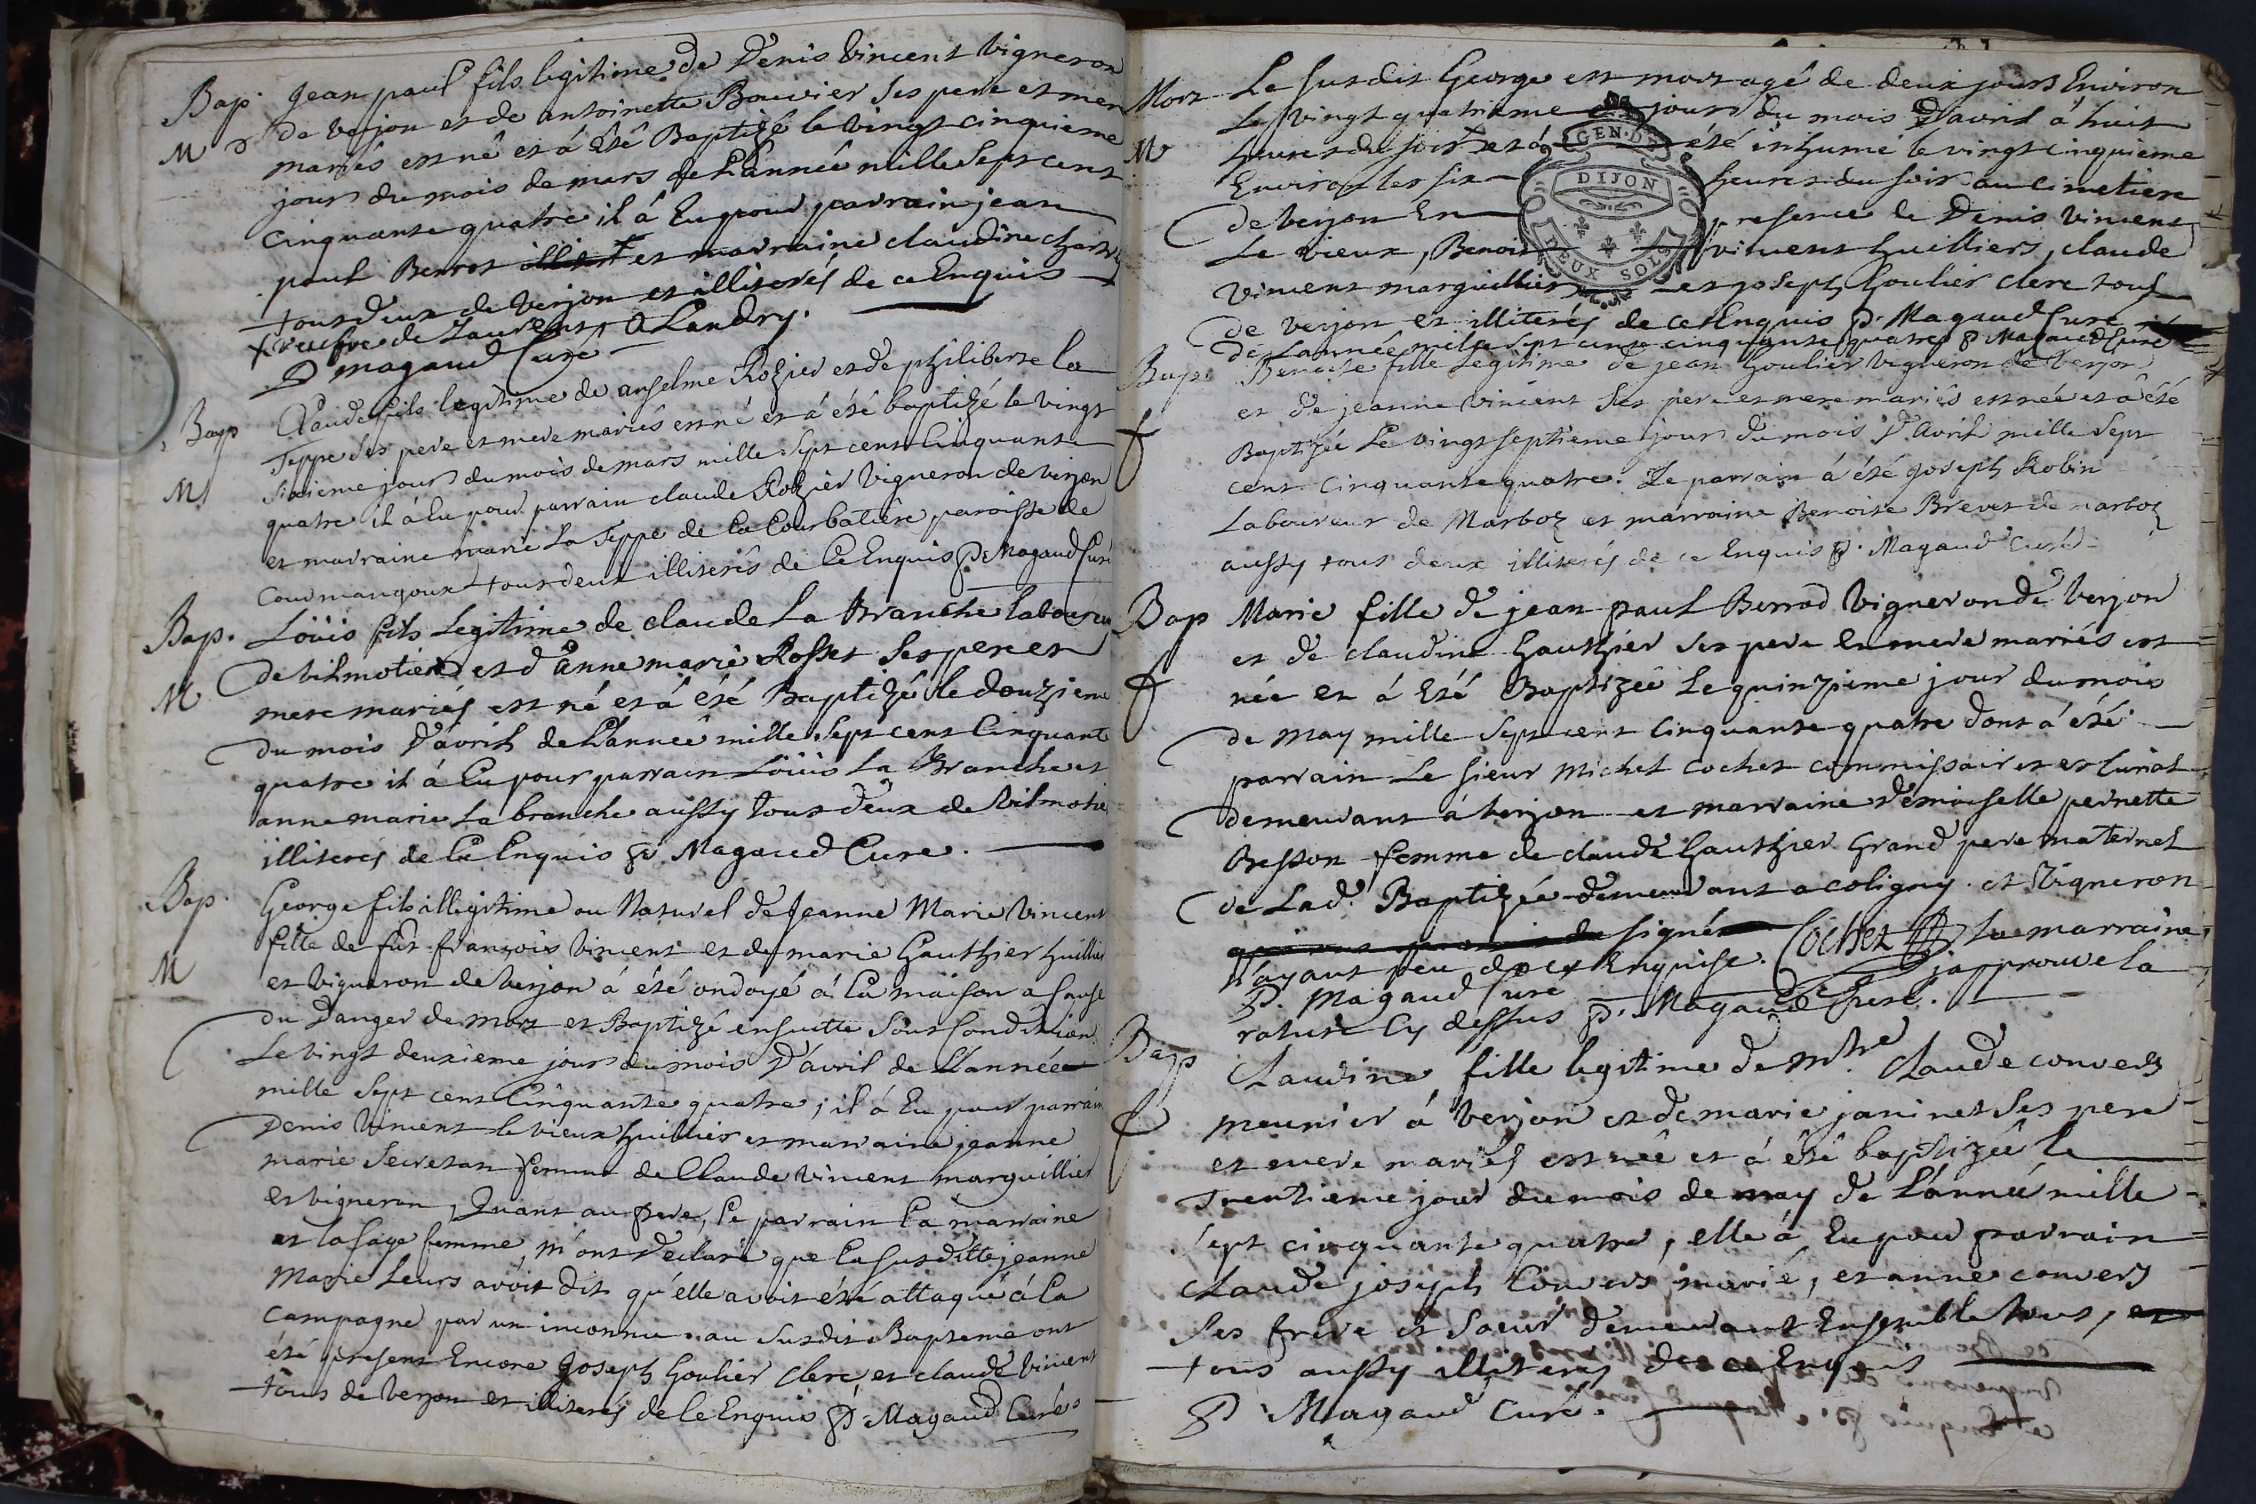 Bap. Jean paul fils legitime de Denis Vincent Vigneron
M de Verjon et de antoinette Bouvier Ses pere et mere
mariés est né et á Eté Baptizé le Vingt cinquieme
jour du mois de mars de L'année mille Sept cent
Cinquante quatre il á Eu pour parrain jean
paul Berrot et marraine claudine
tous deux de Verjon et illiterés de ce Enquis
veufve de Laurent Landry.
P magaud Curé
Bap Claude fils legitime de anselme Rozier et de philiberte la
Teppe Ses pere et mere mariés est né et á été baptizé le Vingt
M Sixieme jour du mois de mars mille Sept cent Cinquante
quatre il á Eu pour parrain claude Rozier Vigneron de verjon
et marraine marie La Teppe de la Courbatiere paroisse de
Courmangoux tous deux illiterés de Ce Enquis P. Magaud Curé
Bap. Loüis fils Legitime de claude La Branche laboureur
de Vilmotier et d'anne marie Rosset Ses pere et
M mere mariés est né et á été Baptizé le douzieme
du mois d'ávril de L'année mille Sept cent Cinquante
quatre il á Eu pour parrain Loüis La Branche et
anne marie La branche aussy tous deux de Vilmotie
illiterés de Ce Enquis P. Magaud Cure.
Bap. George fils illegitime ou Naturel de Jeanne Marie Vincent
fille de fut françois Vincent et de marie Gauthier huillier
M et Vigneron de Verjon á été ondoyé á La maison a Cause
du Danger de Mort et Baptizé ensuitte Sous Condition
Le Vingt deuxieme jour du mois D'ávril de L'année
mille Sept cent Cinquante quatre; il á Eu pour parrain
Denis Vincent le vieux huillier et marraine jeanne
marie Secretan femme de Claude Vincent marguillier
et vigneron, Quant au Pere, Le parrain La marraine
et la Sage femme, m'ont Declaré que La Susditte jeanne
Marie Leurs avoit dit qu'elle avoit été attaqué á La
Campagne par un inconnu. au Susdit Baptéme ont
été present Encore Joseph Goulier Clerc, et claude Vincent
tous de Verjon et illiterés de Ce Enquis P. Magaud Curé
Mort Le Susdit George est mort agé de deux jours Environ
Le Vingt quatrieme jour du mois D'avril á huit
M heures du Soir et á été inhumé le vingt cinquieme
Environ les Six heures du Soir au Cimetiere
de Verjon En presence de Denis Vincent
Le vieux, Benoit Vincent huilliers, claude
Vincent marguillier et joseph Goulier clerc tous
de verjon et illiterés de ce Enquis P. Magaud Curé
de L'année mille Sept cent cinquante quatre P Magaud Curé
GEN. DE
DIJON
DEUX SOLS
Bap. Benoite fille Legitime de jean Goulier Vigneron de Verjon
et de jeanne Vincent Ses pere et mere mariés est née et á été
f Baptizée Le vingt Septieme jour du mois D'avril mille Sept
cent Cinquante quatre. Le parrain á été joseph Robin
Laboureur de Marboz et marraine Benoite Brevet de marboz
aussy tous deux illiterés de ce Enquis P. Magaud Curé
Bap Marie fille de jean paul Berrod Vigneron de Verjon
et de claudine Gauthier Ses pere en mere mariés est
f née et á Eté Baptizée Le quinzieme jour du mois
de May mille Sept cent Cinquante quatre dont á été
parrain Le Sieur Michel Cochet commissaire et Curial
demeurant á Verjon et marraine Démoiselle pernette
Besson femme de claude Gauthier Grand pere maternel
de Lad. Baptizée demeurant a coligny. et Vigneron
signé Cochet La marraine
N'ayant de ce Enquise.
P. Magaud Curé j'approuve la
rature Cy dessus P. Magaud Curé.
Bap Claudine fille legitime de Mtre Claude convers
f meunier á Verjon et de marie janinet Ses pere
et mere mariés est née et á été baptizée le
Trentieme jour du mois de may de L'année mille
Sept cinquante quatre, elle á Eu pour parrain
Claude joseph Convers, marié, et anne convers
Ses frere et Soeur demeurant Ensemble tous, et
tous aussy illiterés de ce Enquis
P. Magaud Curé.